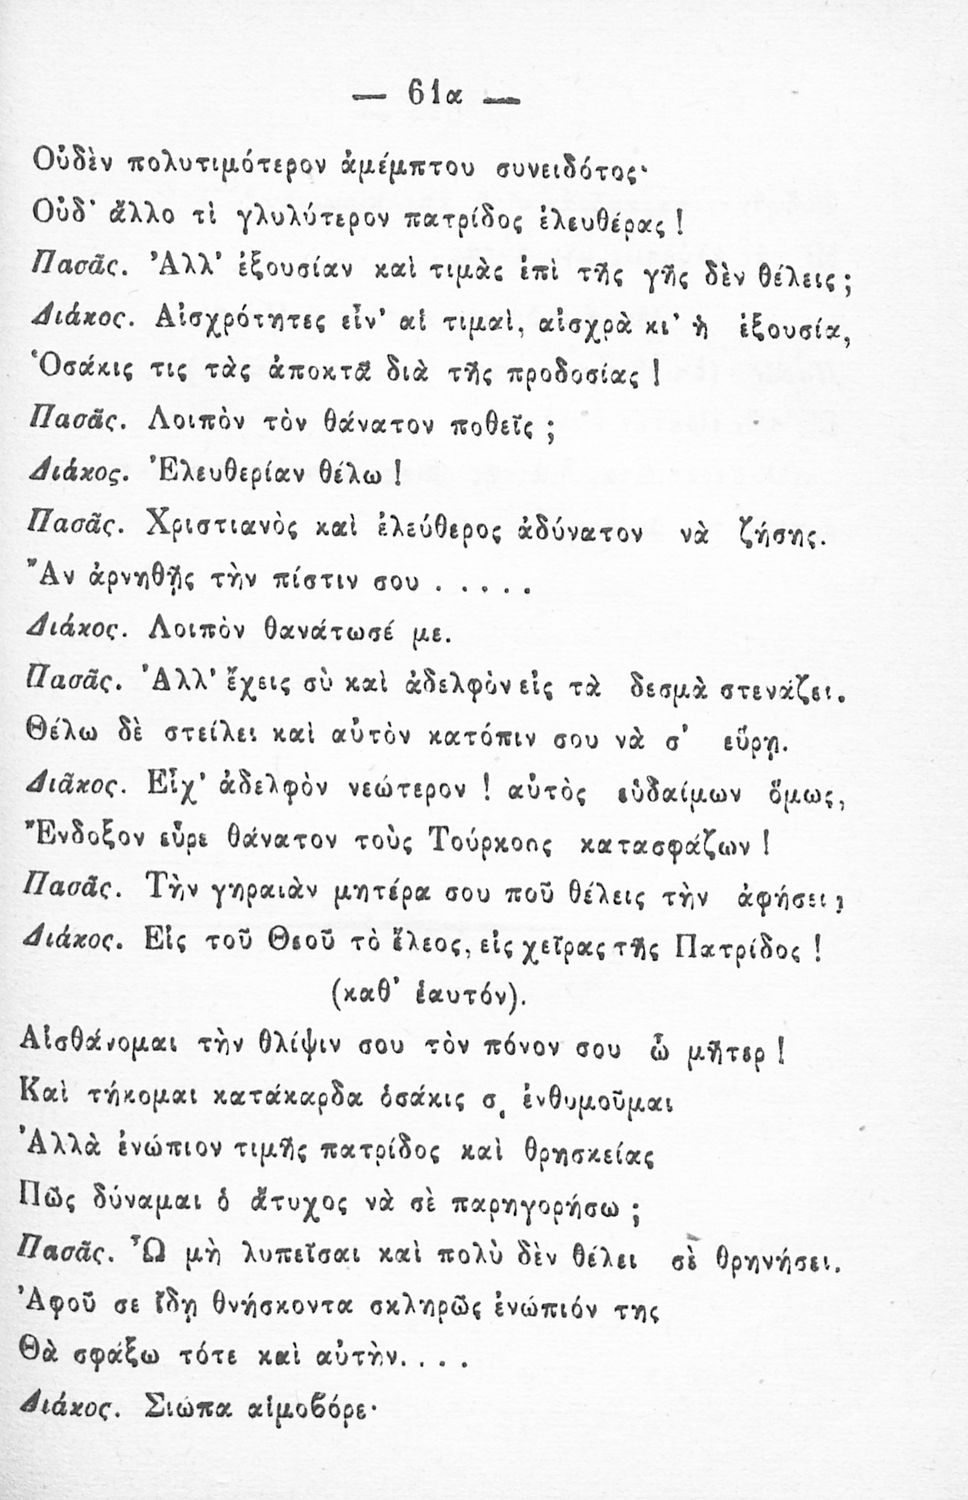 — 61α —
Οὐδὲν πολυτιμότερον ἀμέμπτου συνειδότος·
Οὐδ' ἄλλο τὶ γλυλύτερον πατρίδος ἐλευθέρας!
Πασᾶς. Ἀλλ' ἐξουσίαν καὶ τιμὰς ἐπὶ τῆς γῆς δὲν θέλεις;
Διάκος. Αἰσχρότητες εἶν' αἱ τιμαὶ, αἰσχρὰ κι' ἡ ἐξουσία,
Ὁσάκις τις τὰς ἀποκτᾷ διὰ τῆς προδοσίας!
Πασᾶς. Λοιπὸν τὸν θάνατον ποθεῖς;
Διάκος. Ἐλευθερίαν θέλω!
Πασᾶς. Χριστιανὸς καὶ ἐλεύθερος ἀδύνατον νὰ ζήσῃς.
Ἂν ἀρνηθῇς τὴν πίστιν σου . . . . .
Διάκος. Λοιπὸν θανάτωσέ με.
Πασᾶς. Ἀλλ' ἔχεις σὺ καὶ ἀδελφὸν εἰς τὰ δεσμὰ στενάζει.
Θέλω δὲ στείλει καὶ αὐτὸν κατόπιν σου νὰ σ' εὕρῃ.
Διᾶκος. Εἶχ' ἀδελφὸν νεώτερον! αὐτὸς εὐδαίμων ὅμως,
Ἔνδοξον εὗρε θάνατον τοὺς Τούρκους κατασφάζων!
Πασᾶς. Τὴν γηραιὰν μητέρα σου ποῦ θέλεις τὴν ἀφήσει;
Διάκος. Εἰς τοῦ Θεοῦ τὸ ἔλεος, εἰς χεῖρας τῆς Πατρίδος!
(καθ' ἑαυτόν).
Αἰσθάνομαι τὴν θλίψιν σου τὸν πόνον σου ὦ μῆτερ!
Καὶ τήκομαι κατάκαρδα ὁσάκις σ, ἐνθυμοῦμαι
Ἀλλὰ ἐνώπιον τιμῆς πατρίδος καὶ θρησκείας
Πῶς δύναμαι ὁ ἄτυχος νὰ σὲ παρηγορήσω;
Πασᾶς. Ὦ μὴ λυπεῖσαι καὶ πολὺ δὲν θέλει σὲ θρηνήσει.
Ἀφοῦ σε ἴδῃ θνήσκοντα σκληρῶς ἐνώπιόν της
Θὰ σφάξω τότε καὶ αὐτὴν. . . .
Διάκος. Σιώπα αἱμοβόρε·